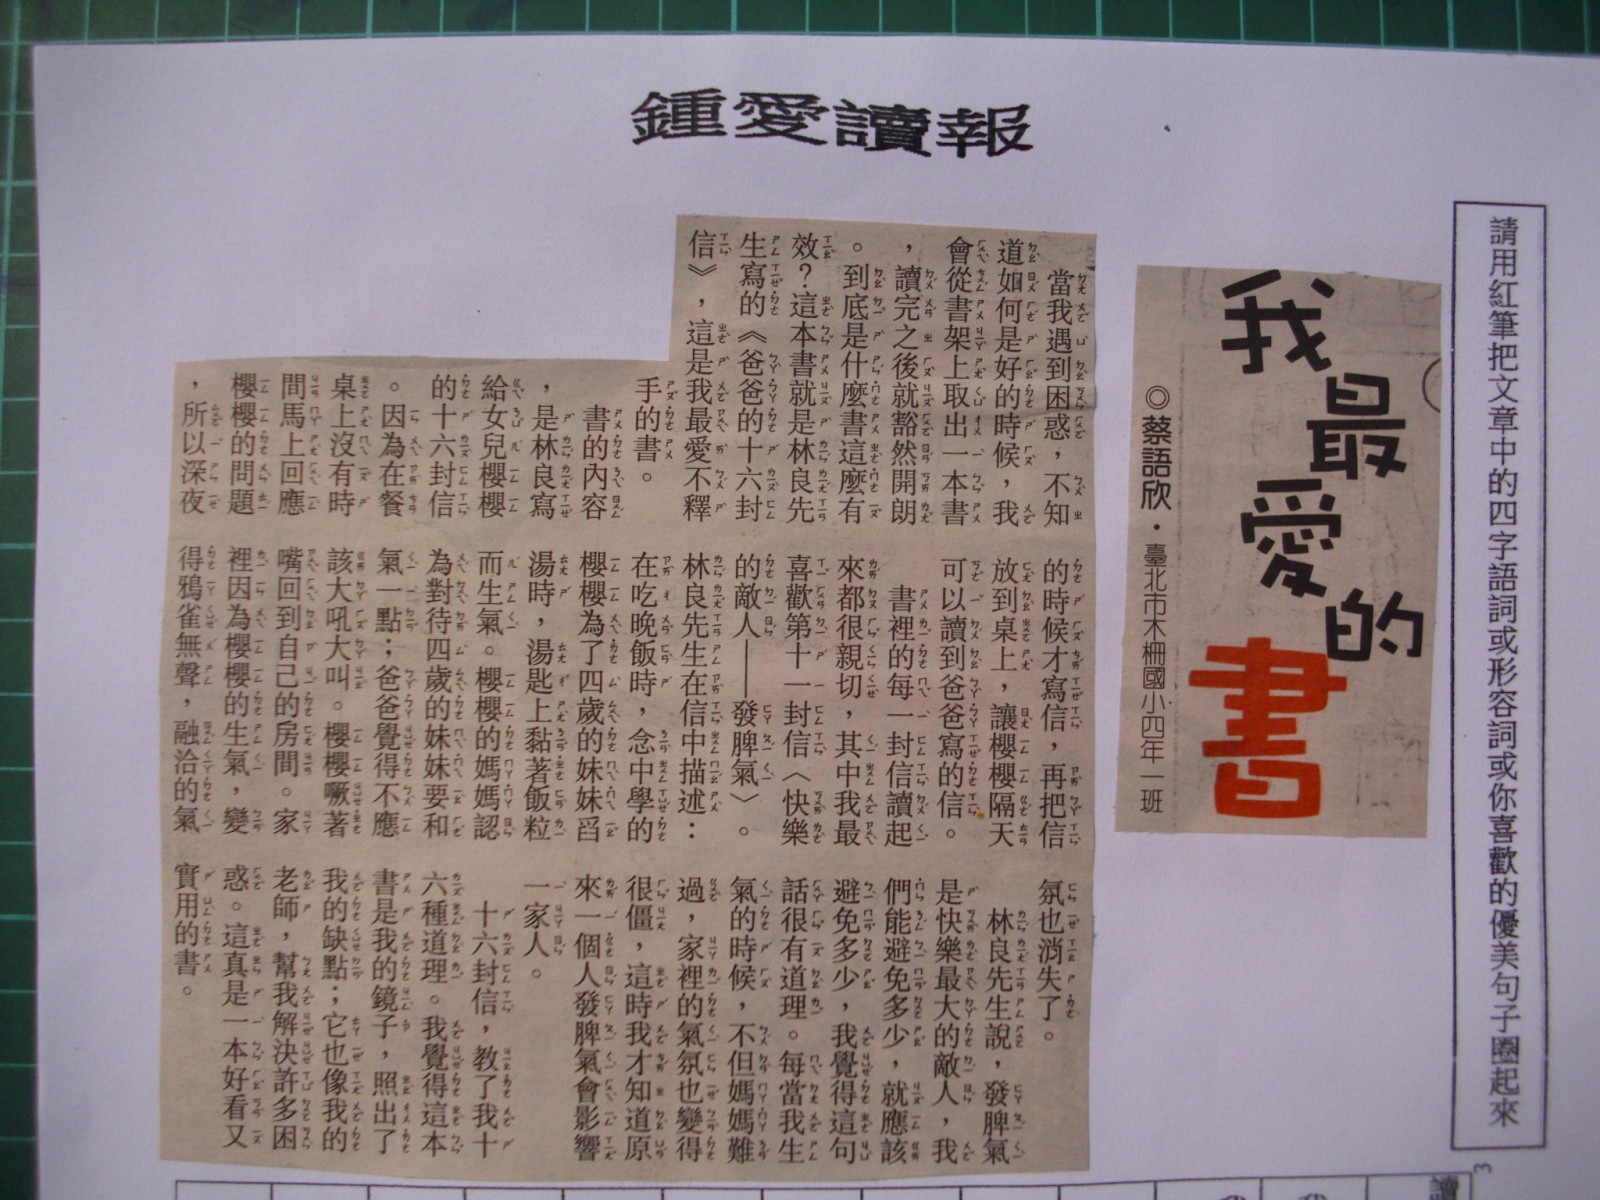 鍾愛讀報
請用紅筆把文章中的四字語詞或形容詞或你喜歡的優美句子圈起來
我最愛的書
◎蔡語欣．臺北市木柵國小四年一班
當我遇到困惑，不知
道如何是好的時候，我
會從書架上取出一本書
，讀完之後就豁然開朗
。到底是什麼書這麼有
效？這本書就是林良先
生寫的《爸爸的十六封
信》，這是我最愛不釋
手的書。
書的內容
，是林良寫
給女兒櫻櫻
的十六封信
。因為在餐
桌上沒有時
間馬上回應
櫻櫻的問題
，所以深夜
的時候才寫信，再把信
放到桌上，讓櫻櫻隔天
可以讀到爸爸寫的信。
書裡的每一封信讀起
來都很親切，其中我最
喜歡第十一封信〈快樂
的敵人——發脾氣〉。
林良先生在信中描述：
在吃晚飯時，念中學的
櫻櫻為了四歲的妹妹舀
湯時，湯匙上黏著飯粒
而生氣。櫻櫻的媽媽認
為對待四歲的妹妹要和
氣一點；爸爸覺得不應
該大吼大叫。櫻櫻噘著
嘴回到自己的房間。家
裡因為櫻櫻的生氣，變
得鴉雀無聲，融洽的氣
氛也消失了。
林良先生說，發脾氣
是快樂最大的敵人，我
們能避免多少，就應該
避免多少，我覺得這句
話很有道理。每當我生
氣的時候，不但媽媽難
過，家裡的氣氛也變得
很僵，這時我才知道原
來一個人發脾氣會影響
一家人。
十六封信，教了我十
六種道理。我覺得這本
書是我的鏡子，照出了
我的缺點；它也像我的
老師，幫我解決許多困
惑。這真是一本好看又
實用的書。
3